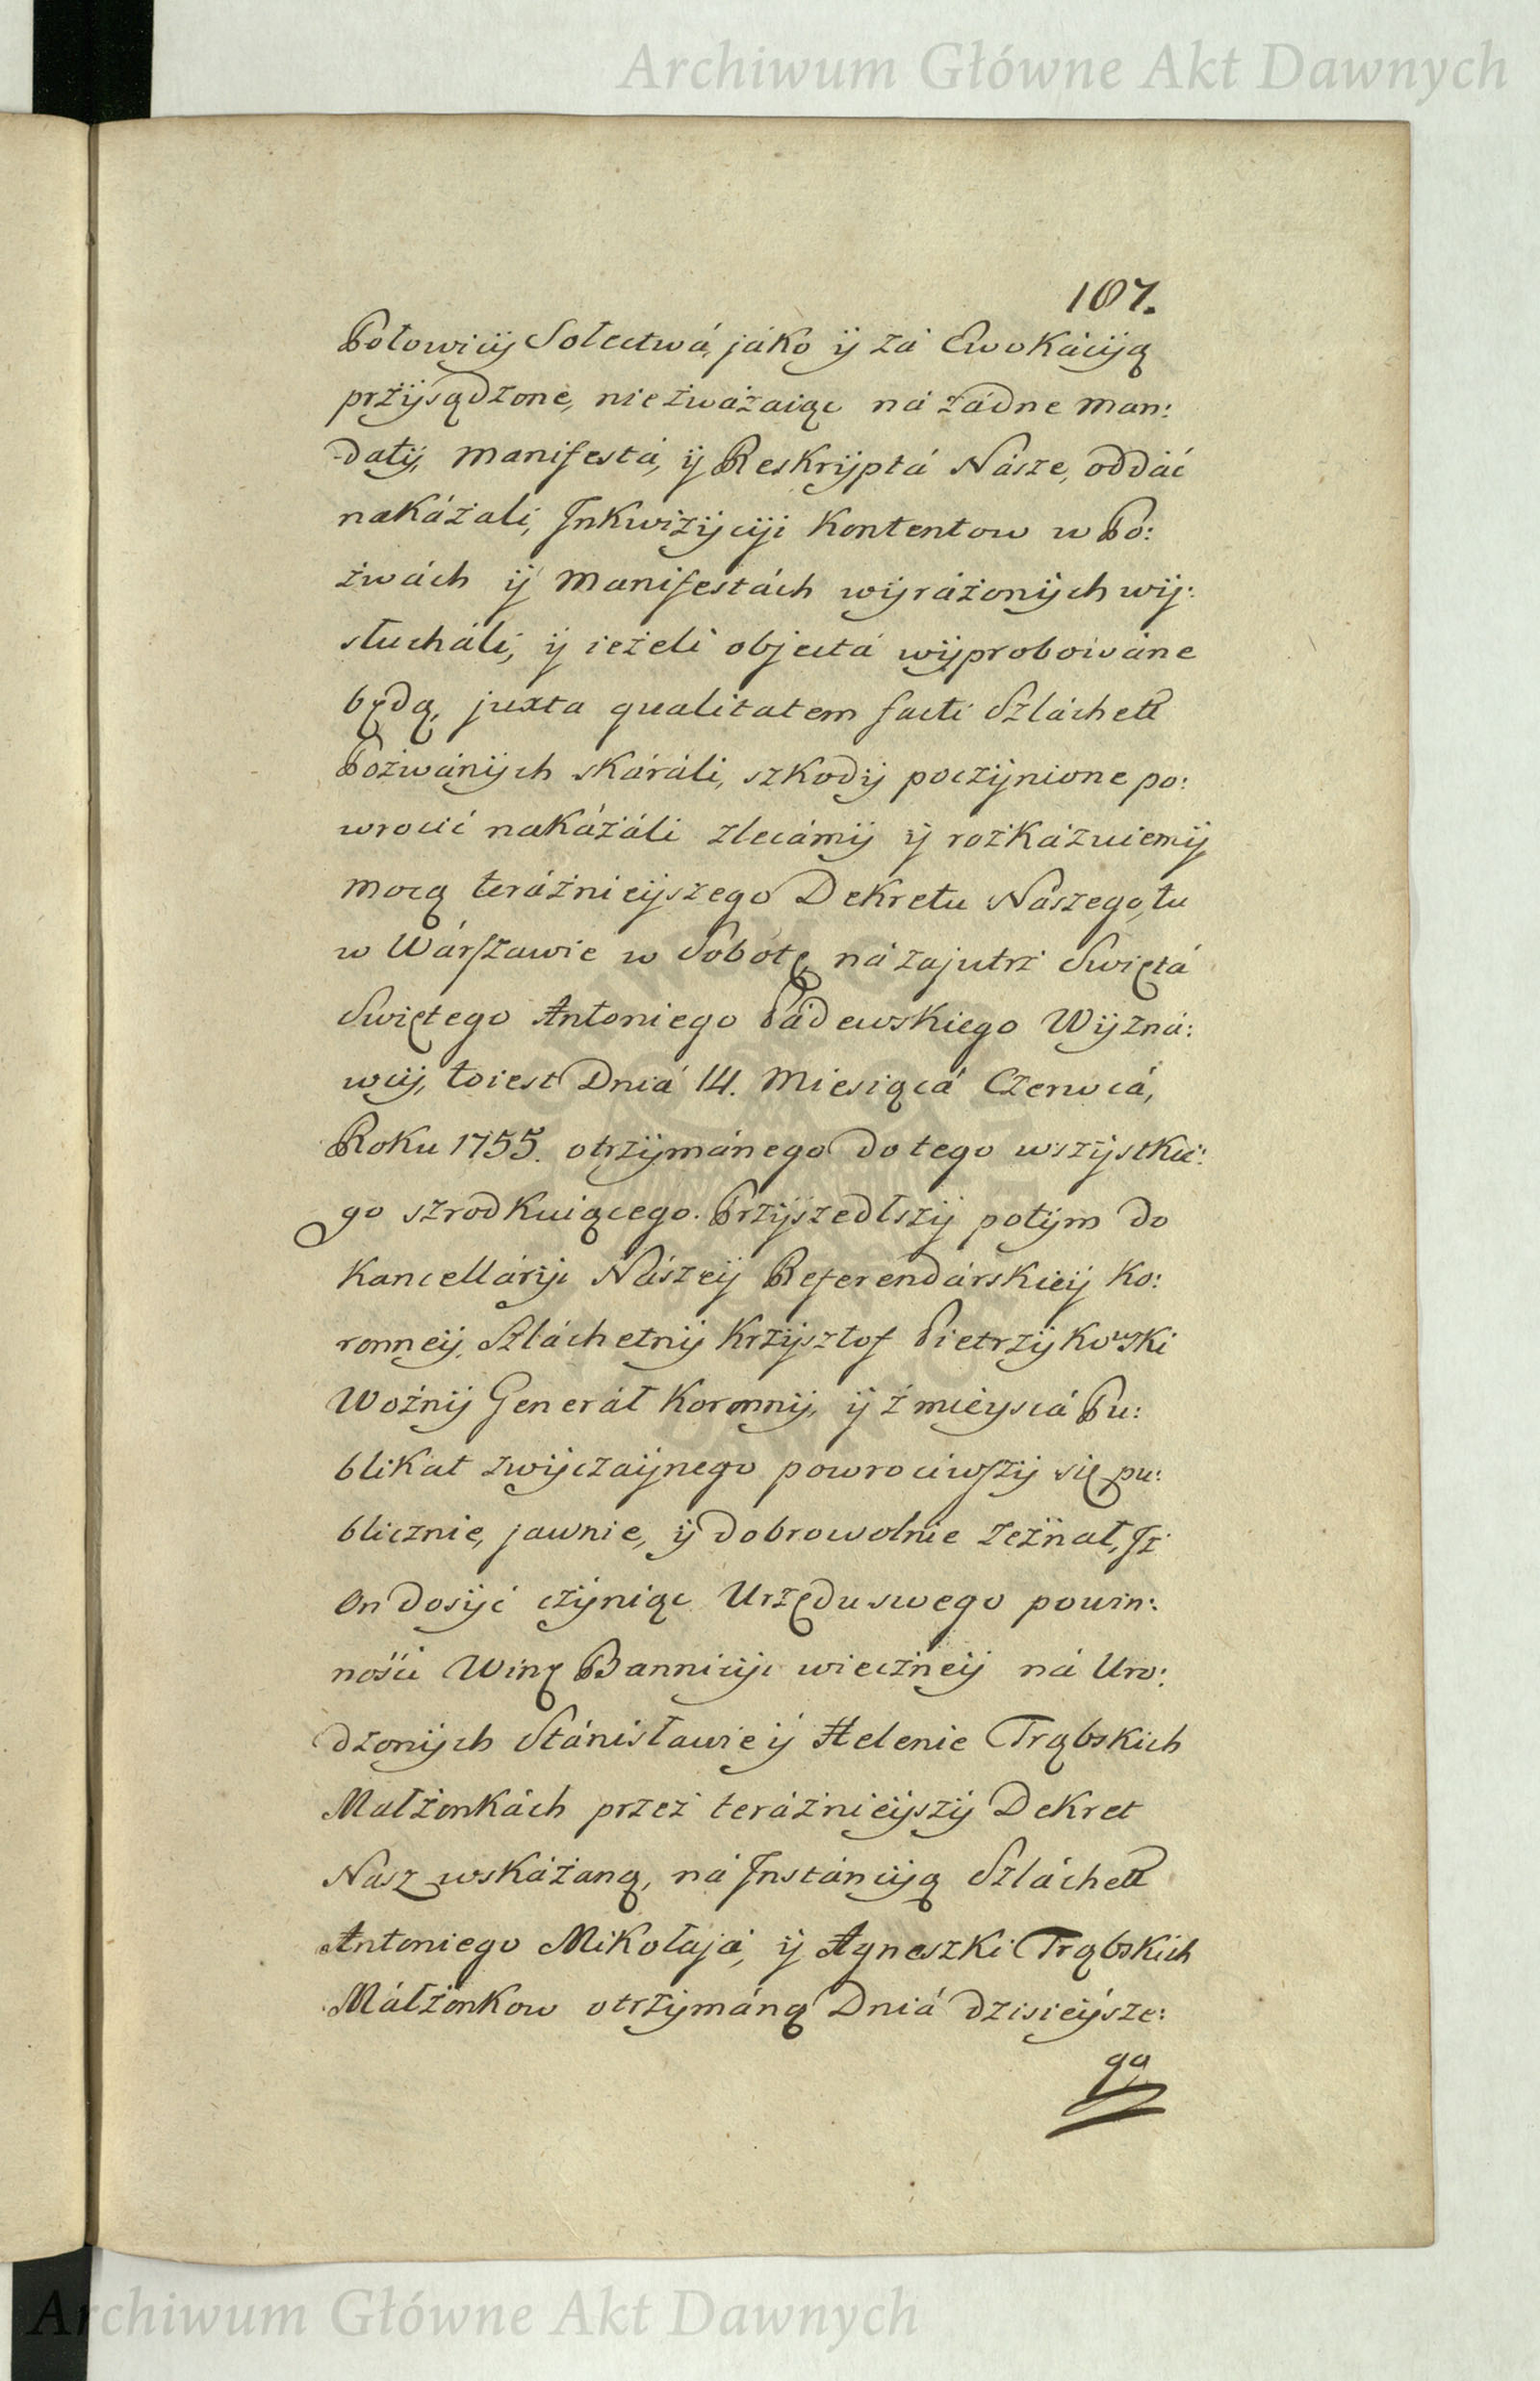 Archiwum Główne Akt Dawnych
107.
Połowicy Sołectwá, jáko ÿ zá Ewokácÿą
przÿsądzone, niezważaiąc ná żádne man:
datÿ, manifestá, ÿ Reskrÿptá Násze, oddáć
nakázali, Inkwizÿcÿi Kontentow w Po:
zwách ÿ manifestách wÿráżonÿch wÿ:
słucháli, ÿ ieżeli objectá wÿprobowáne
będą, juxta qualitatem facti Szláchett
Pozwánÿch skáráli, szkodÿ poczÿnione po:
wrocić nakázáli zlecámÿ ÿ rozkázuiemÿ
mocą teráznieÿszego Dekretu Nászego, tu
w Wárszawie w Sobotę názajutrz Swiętá
Swiętego Antoniego Pádewskiego Wÿzná:
wcÿ, toiest Dniá 14. Miesiącá Czerwcá,
Roku 1755. otrzÿmánego do tego wszÿstkie:
go szrodkuiącego. Przÿszedłszÿ potÿm do
Kancellárÿi Nászeÿ Referendárskieÿ Ko:
ronneÿ, Szláchetnÿ Krzÿsztof Pietrzÿkowski
Woźnÿ Generáł Koronnÿ, ÿ z mieÿscá Pu:
blikat zwÿczaÿnego powrociwszÿ się pu:
blicznie, jawnie, ÿ dobrowolnie zeznał, Jż
On dosÿć czÿniąc Urzędu swego powin:
ności Winę Bannicÿi wieczneÿ ná Uro:
dzonÿch Stánisławie ÿ Helenie Trąbskich
Małżonkách przez teráznieÿszÿ Dekret
Nasz wskázaną, ná Instáncÿą Szláchett
Antoniego Mikołajá, ÿ Agneszki Trąbskich
Máłżonkow otrzÿmáną Dniá dzisieÿsze:
go
Archiwum Główne Akt Dawnych